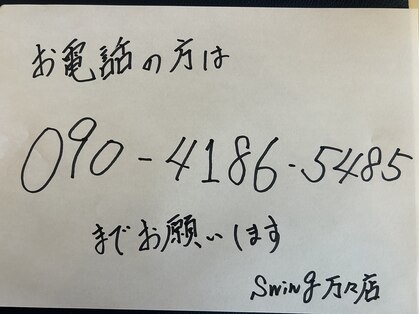 お電話の方は
090-4186-5485
までお願いします
Swing万々店